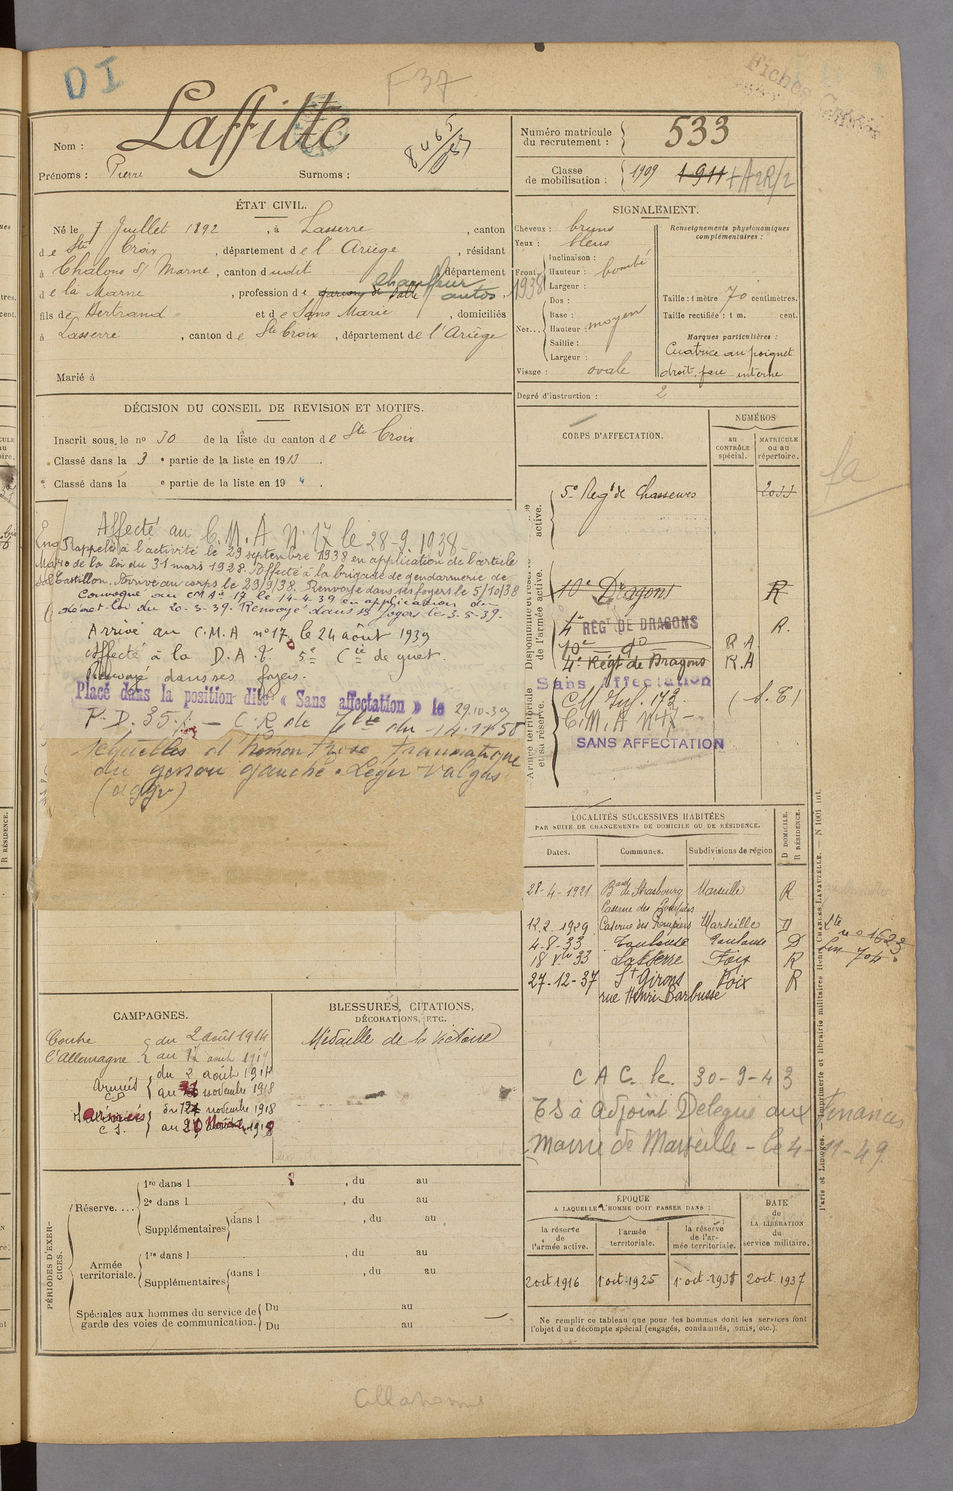 DI
F37
Nom : Laffitte
8465
Prénoms : Pierre Surnoms :
Numéro matricule du recrutement : 533
Classe de mobilisation : 1909 1911 + A2R/2
ÉTAT CIVIL.
Né le 7 Juillet 1892, à Lasserre, canton
de Ste Croix, département de l'Ariège, résidant
à Châlons s/ Marne, canton dudit, département
de la Marne, profession de garçon de salle chauffeur autos 1938
fils de Bertrand et de Sans Marie, domiciliés
à Lasserre, canton de Ste Croix, département de l'Ariège
Marié à
SIGNALEMENT.
Cheveux : bruns
Yeux : bleus
Front Inclinaison :
Hauteur : bombé
Largeur :
Nez... Dos :
Base :
Hauteur : moyen
Saillie :
Largeur :
Visage : ovale
Renseignements physionomiques complémentaires :
Taille : 1 mètre 70 centimètres.
Taille rectifiée : 1 m. cent.
Marques particulières :
Cicatrice au poignet
droit, face interne
Degré d'instruction : 2
DÉCISION DU CONSEIL DE REVISION ET MOTIFS.
Inscrit sous le no 30 de la liste du canton de Ste Croix
Classé dans la 3e partie de la liste en 1913.
Classé dans la e partie de la liste en 19 .
Affecté au C.M.A N. 17 le 28-9-1938
Rappelé à l'activité le 29 septembre 1938 en application de l'article
de la loi du 31 mars 1928. Affecté à la brigade de gendarmerie de
Castillon. Arrivé au corps le 23/9/38. Renvoyé dans ses foyers le 5/10/38
Convoqué au CMA 17 le 14-4-39 en application du
décret-loi du 20-3-39. Renvoyé dans ses foyers le 3-5-39.
Arrivé au C.M.A no 17 le 24 août 1939
Affecté à la D.A.T. 5e Cie de guet.
Renvoyé dans ses foyers.
Placé dans la position dite « Sans affectation » le 29.10.39
P.D. 35 % C.R de
Sequelles d'hémarthrose traumatique
du genou gauche. Léger valgus
(aggr)
CORPS D'AFFECTATION.
NUMÉROS
au CONTRÔLE spécial.
MATRICULE ou au répertoire.
5e Regt de Chasseurs 2033
10e Dragons R
4e RÉGt DE DRAGONS R.
10e do R.A
4e Régt de Dragons R.A
Sans affectation
C.M.A N 17
SANS AFFECTATION
Disponibilité et réserve de l'armée active.
Armée territoriale et sa réserve.
LOCALITÉS SUCCESSIVES HABITÉES
PAR SUITE DE CHANGEMENTS DE DOMICILE OU DE RÉSIDENCE.
Dates. Communes. Subdivisions de région
D DOMICILE.
R RÉSIDENCE.
28-4-1921 Bard de Strasbourg Marseille R
Caserne des Pompiers
12.2.1929 Caserne des Pompiers Marseille D
4-8-33 Toulouse Toulouse D
18 33 Lasserre Foix R
27-12-37 St Girons Foix R
rue Henri Barbusse
CAMPAGNES.
Contre l'Allemagne du 2 août 1914
BLESSURES, CITATIONS,
DÉCORATIONS, ETC.
Médaille de la Victoire
C A C. le. 30-9-43
ES à Adjoint Délégué aux Finances
Mairie de Marseille - le 4-11-49
PÉRIODES D'EXERCICES.
Réserve....
1re dans l , du au
2e dans l , du au
Supplémentaires dans l , du au
Armée territoriale.
1re dans l , du au
Supplémentaires dans l , du au
Spéciales aux hommes du service de garde des voies de communication.
Du au
Du au
ÉPOQUE
A LAQUELLE L'HOMME DOIT PASSER DANS :
la réserve de l'armée active.
l'armée territoriale.
la réserve de l'armée territoriale.
DATE de LA LIBÉRATION du service militaire.
2 oct 1916 1 oct 1925 1 oct 1938 2 oct. 1937
Ne remplir ce tableau que pour les hommes dont les services font
l'objet d'un décompte spécial (engagés, condamnés, omis, etc.).
Paris et Limoges. — Imprimerie et librairie militaires Henri CHARLES-LAVAUZELLE. — N 1001 int.